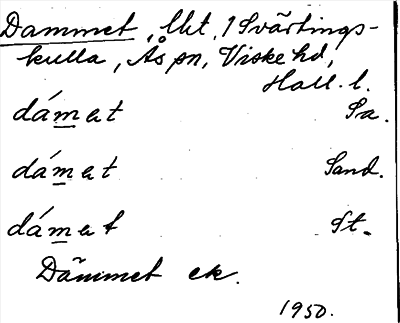 Dammet, lkt, 1 Svärtings-
kulla, Ås sn, Viske hd,
Hall. l.
dámat Sa.
dámat Sand.
dámat St.
Dämmet ek.
1950.